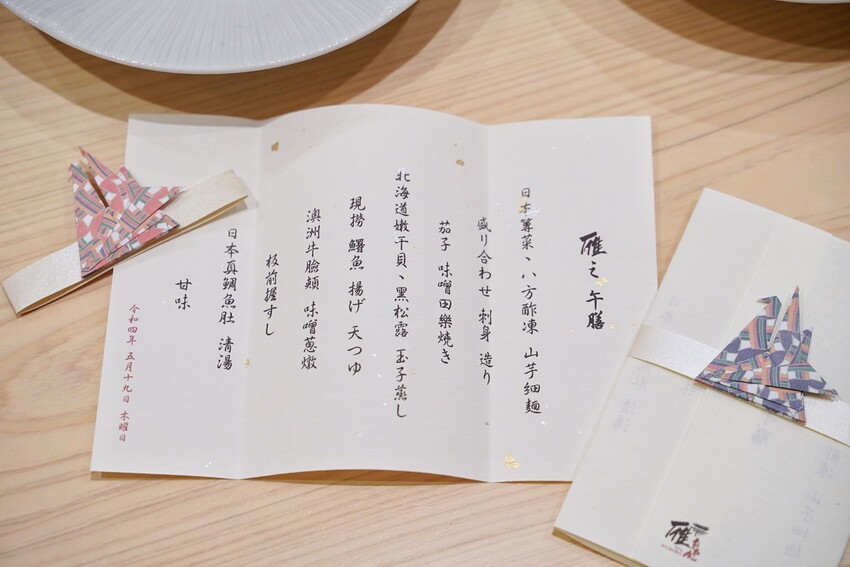 雁之 午膳
日本蓴菜、八方酢凍 山芋細麺
盛り合わせ 刺身 造り
茄子 味噌田樂焼き
北海道嫩干貝、黒松露 玉子蒸し
現撈 鰡魚 揚げ 天つゆ
澳洲牛臉頰 味噌蔥燉
板前握すし
日本真鯛魚肚 清湯
甘味
令和四年 五月十九日 木曜日
雁